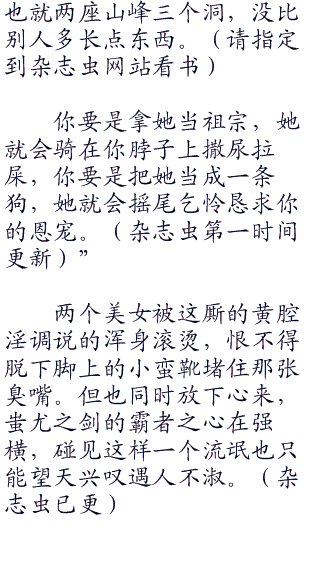 也就两座山峰三个洞，没比
别人多长点东西。（请指定
到杂志虫网站看书）
你要是拿她当祖宗，她
就会骑在你脖子上撒尿拉
屎，你要是把她当成一条
狗，她就会摇尾乞怜恳求你
的恩宠。（杂志虫第一时间
更新）”
两个美女被这厮的黄腔
淫调说的浑身滚烫，恨不得
脱下脚上的小蛮靴堵住那张
臭嘴。但也同时放下心来，
蚩尤之剑的霸者之心在强
横，碰见这样一个流氓也只
能望天兴叹遇人不淑。（杂
志虫已更）